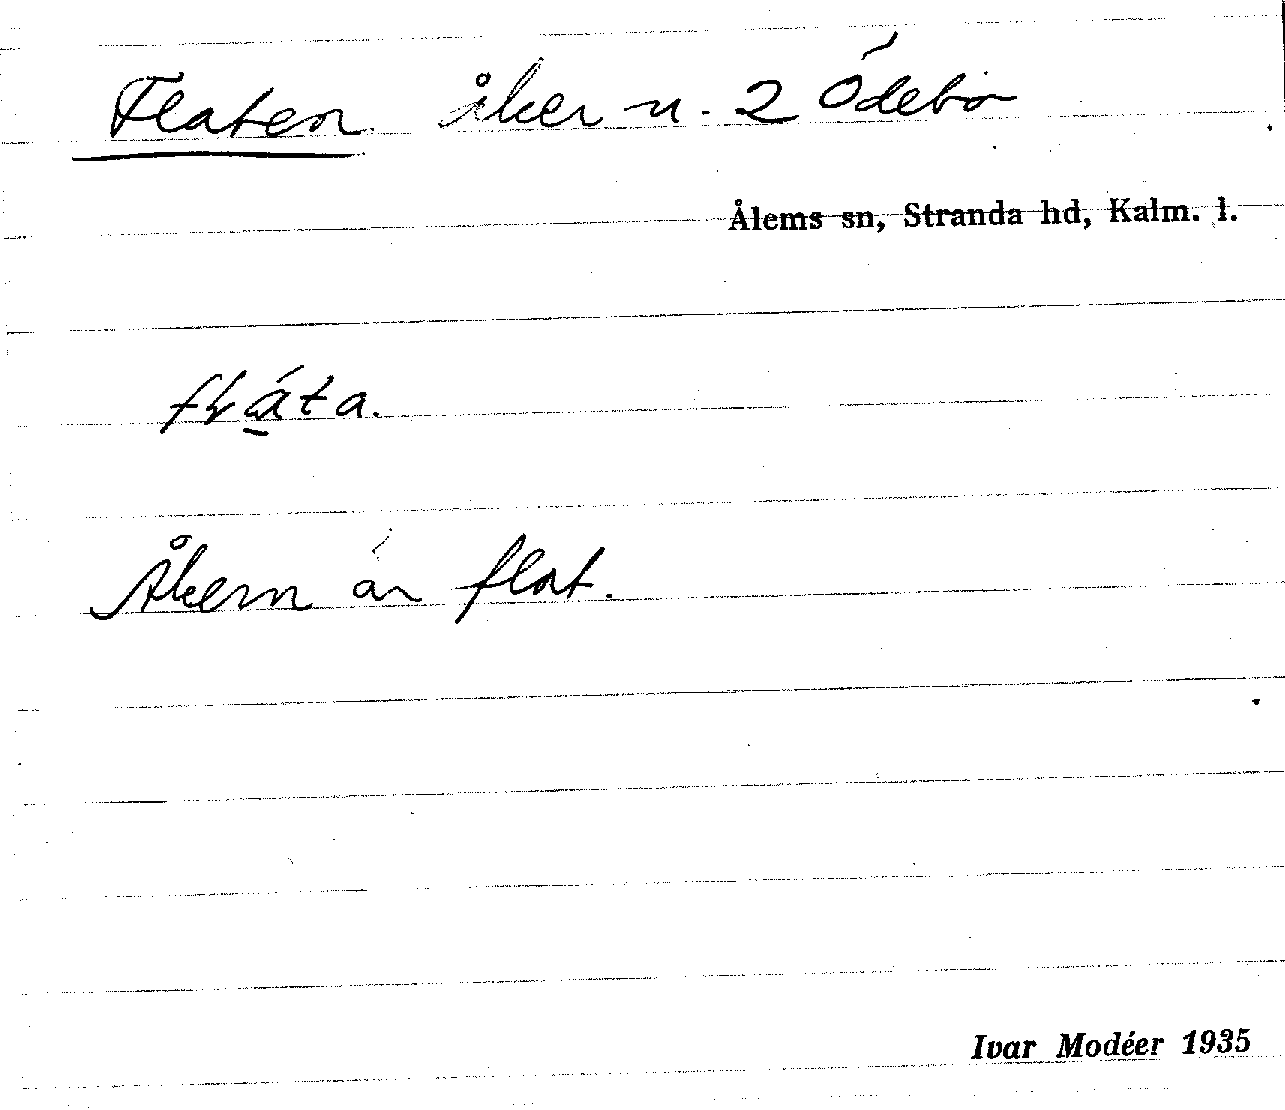 Flaten åker n. 2 Ödebo
Ålems sn, Stranda hd, Kalm. l.
Åkern är flat.
Ivar Modéer 1935